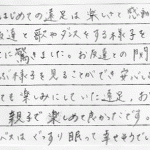 はじめての遠足は 楽しさと感動
友達と歌やダンスをする様子を
に驚きました。お友達との関
ぶ様子を見ることができ安心しま
ても楽しみにしていた遠足、お
親子で楽しめて良かったです。
バスはぐっすり眠って幸せそうでし